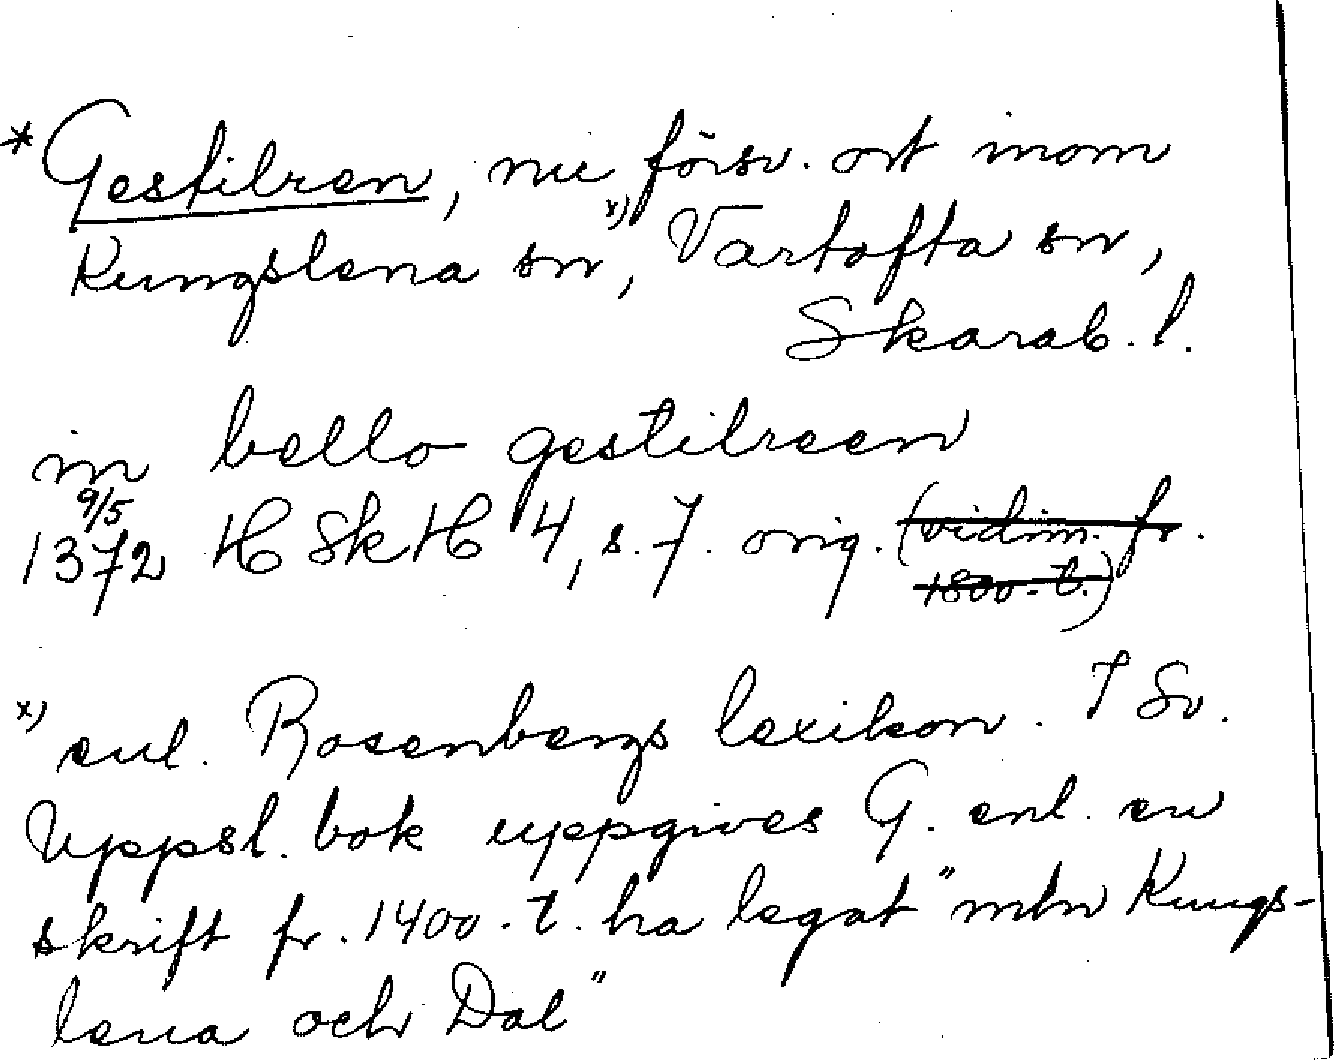 *Gestilren, nu försv. ort inom
Kungslena sn x), Vartofta sn,
Skarab. l.
in bello gestilreen
9/5
1372 H Sk H 4, s. 7. orig. (vidim. fr.
1800-t.)
x) enl. Rosenbergs lexikon. I Sv.
Uppsl. bok uppgives G. enl. en
skrift fr. 1400-t. ha legat "mln Kungs-
lena och Dal"